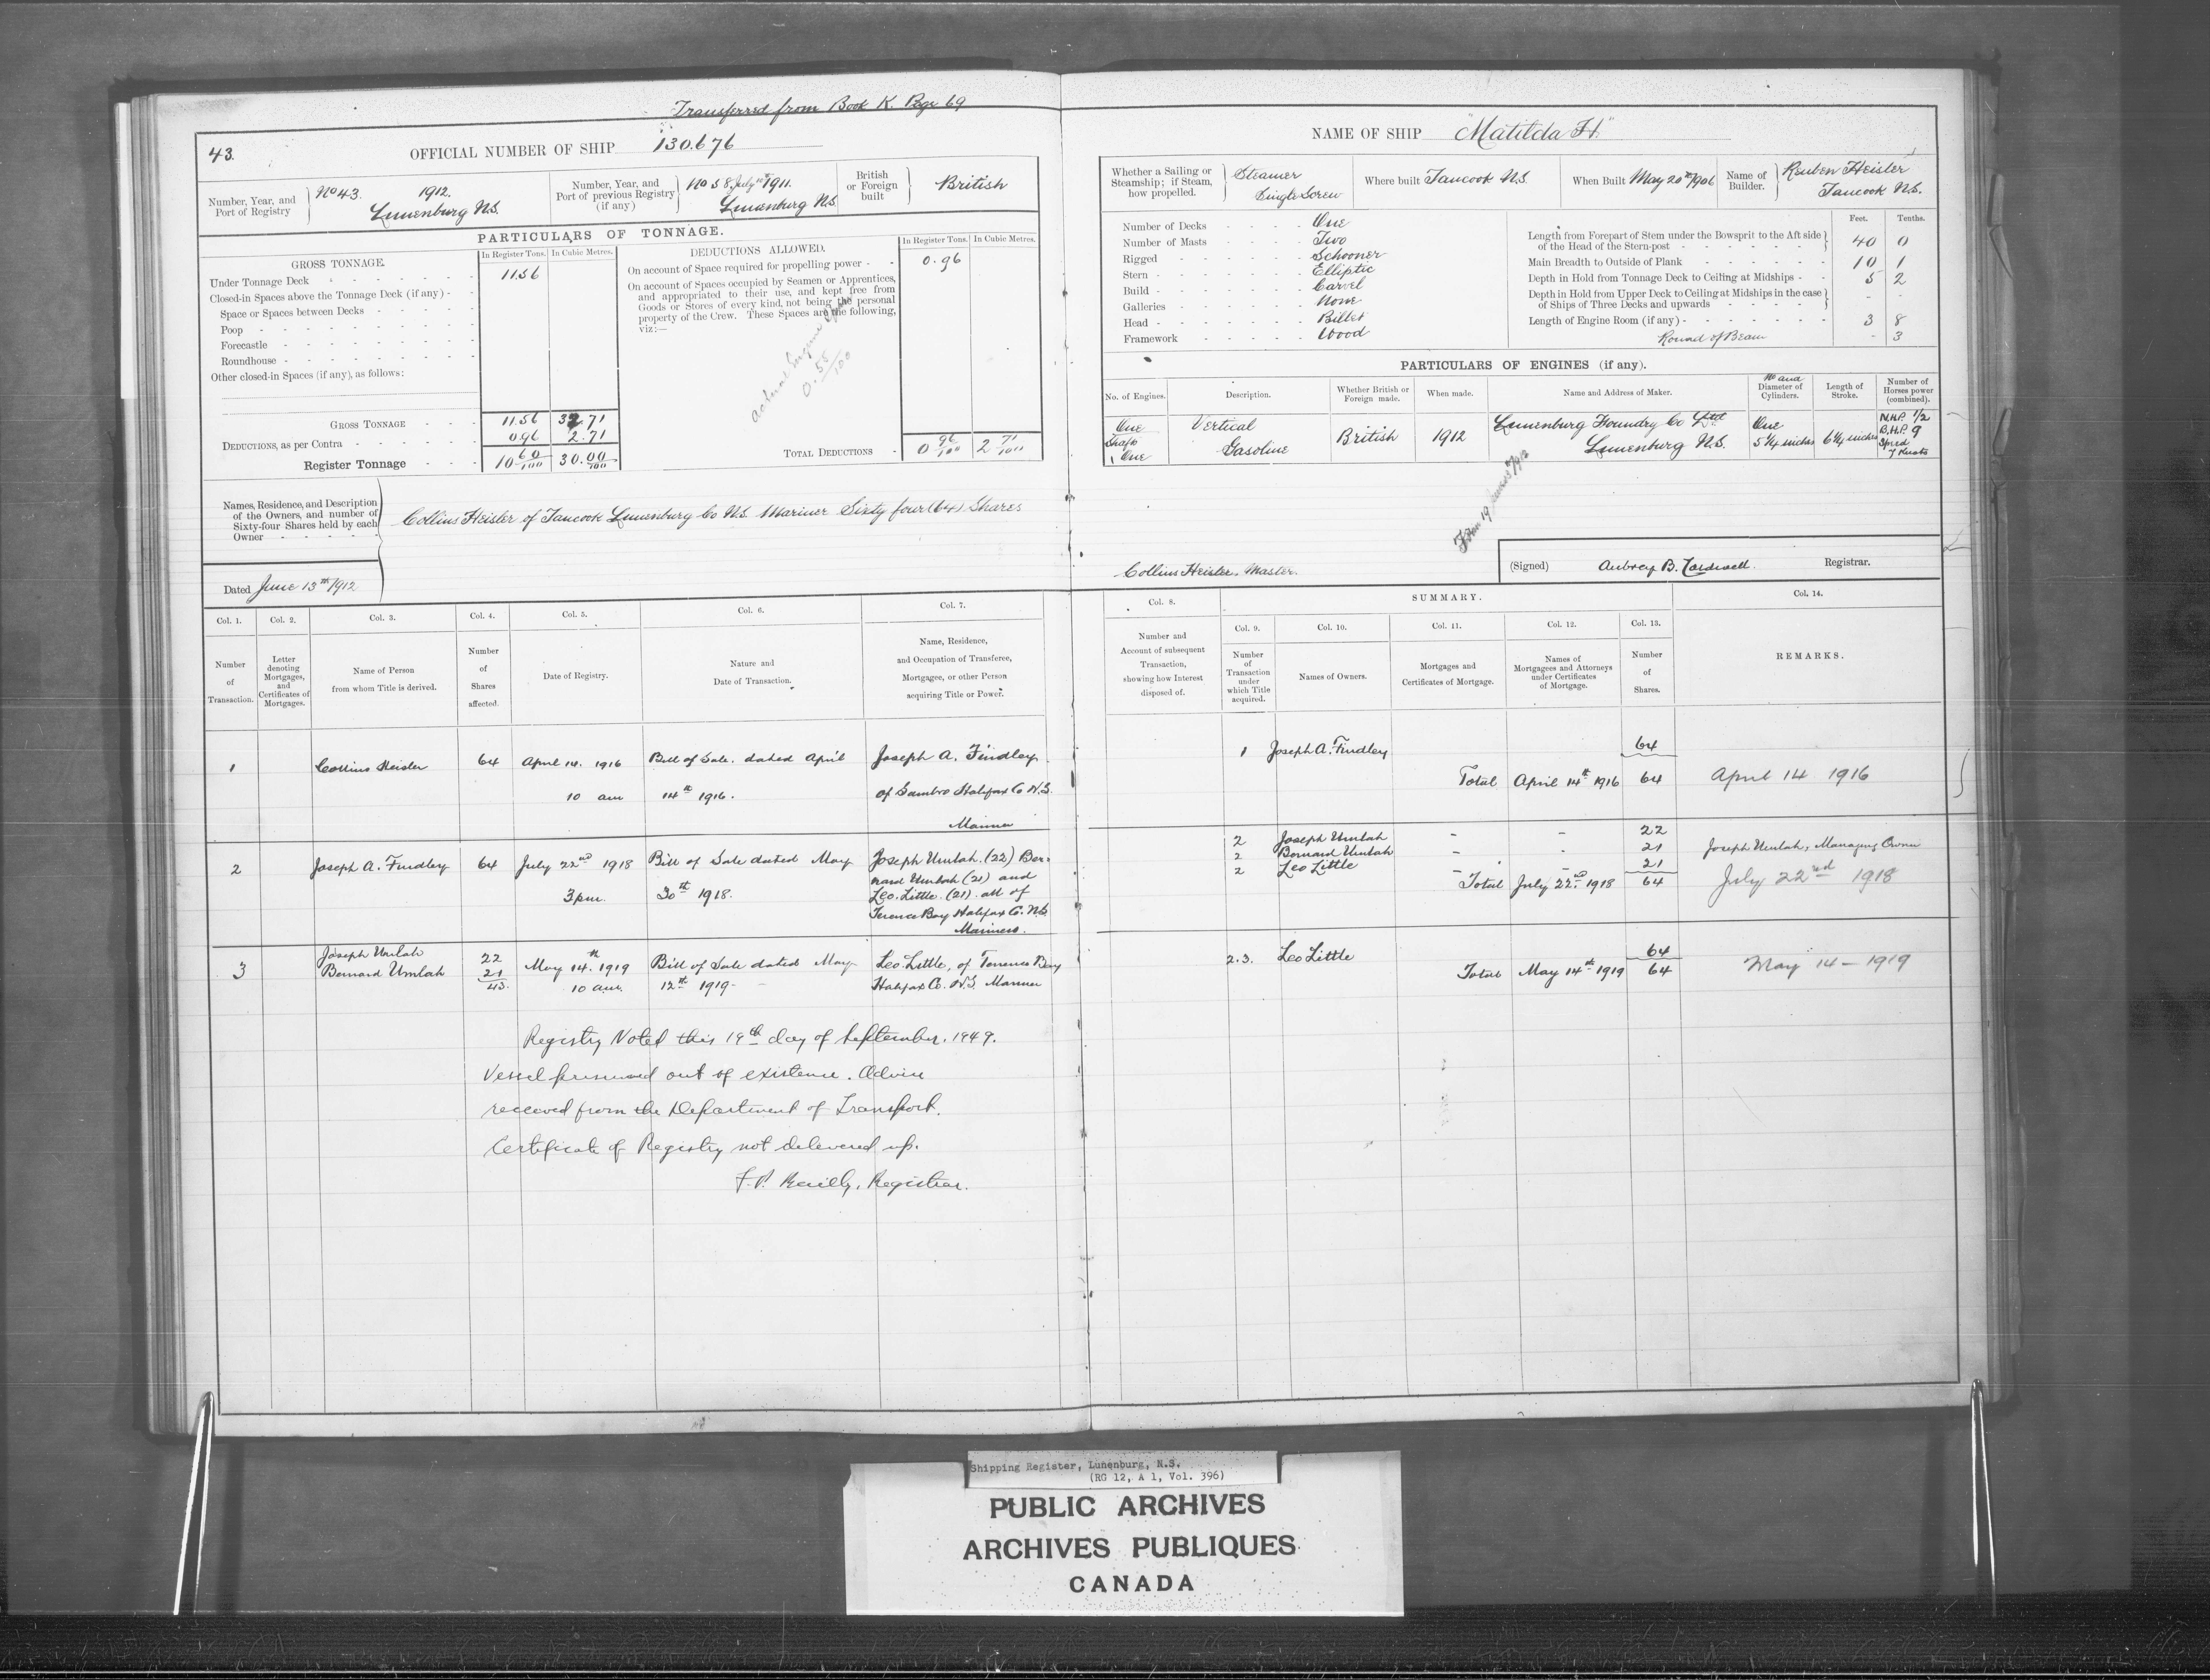 Transferred from Book K. Page 69
43.
OFFICIAL NUMBER OF SHIP 130.676
Number, Year, and Port of Registry
No 43. 1912.
Lunenburg N.S.
Number, Year, and Port of previous Registry (if any)
No 38. July 1911.
Lunenburg N.S.
British or Foreign built
British
PARTICULARS OF TONNAGE.
GROSS TONNAGE.
In Register Tons. In Cubic Metres.
Under Tonnage Deck 11.56
Closed-in Spaces above the Tonnage Deck (if any)
Space or Spaces between Decks
Poop
Forecastle
Roundhouse
Other closed-in Spaces (if any), as follows:
GROSS TONNAGE 11.56 32.71
DEDUCTIONS, as per Contra 0.96 2.71
Register Tonnage 10 60/100 30.00/100
DEDUCTIONS ALLOWED.
In Register Tons. In Cubic Metres.
On account of Space required for propelling power 0.96
On account of Spaces occupied by Seamen or Apprentices,
and appropriated to their use, and kept free from
Goods or Stores of every kind, not being the personal
property of the Crew. These Spaces are the following,
viz:—
actual Engine Space
0.58/100
TOTAL DEDUCTIONS 0 96/100 2 71/100
Names, Residence, and Description
of the Owners, and number of
Sixty-four Shares held by each
Owner
Collins Heisler of Tancook Lunenburg Co N.S. Mariner Sixty four (64) Shares
Dated June 13th 1912
NAME OF SHIP "Matilda H."
Whether a Sailing or Steamship; if Steam, how propelled.
Steamer
Single Screw
Where built Tancook N.S.
When Built May 20th 1906
Name of Builder.
Reuben Heisler
Tancook N.S.
Number of Decks One
Number of Masts Two
Rigged Schooner
Stern Elliptic
Build Carvel
Galleries None
Head Billet
Framework Wood
Feet. Tenths.
Length from Forepart of Stem under the Bowsprit to the Aft side
of the Head of the Stern-post 40 0
Main Breadth to Outside of Plank 10 1
Depth in Hold from Tonnage Deck to Ceiling at Midships 5 2
Depth in Hold from Upper Deck to Ceiling at Midships in the case
of Ships of Three Decks and upwards - -
Length of Engine Room (if any) 3 8
Round of Beam - 3
PARTICULARS OF ENGINES (if any).
No. of Engines.
Description.
Whether British or Foreign made.
When made.
Name and Address of Maker.
No and Diameter of Cylinders.
Length of Stroke.
Number of Horses power (combined).
One
Shaft
One
Vertical
Gasoline
British
1912
Lunenburg Foundry Co Ltd
Lunenburg N.S.
One
5 1/4 inches
6 1/4 inches
N.H.P. 1/2
B.H.P. 9
Speed
7 Knots
Collins Heisler. Master.
(Signed) Aubrey B. Cardwell. Registrar.
Col. 1.
Number of Transaction.
Col. 2.
Letter denoting Mortgages, and Certificates of Mortgages.
Col. 3.
Name of Person
from whom Title is derived.
Col. 4.
Number of Shares affected.
Col. 5.
Date of Registry.
Col. 6.
Nature and
Date of Transaction.
Col. 7.
Name, Residence,
and Occupation of Transferee,
Mortgagee, or other Person
acquiring Title or Power.
Col. 8.
Number and
Account of subsequent
Transaction,
showing how Interest
disposed of.
SUMMARY.
Col. 9.
Number of Transaction under which Title acquired.
Col. 10.
Names of Owners.
Col. 11.
Mortgages and
Certificates of Mortgage.
Col. 12.
Names of
Mortgagees and Attorneys
under Certificates
of Mortgage.
Col. 13.
Number of Shares.
Col. 14.
REMARKS.
1 Collins Heisler 64 April 14. 1916 Bill of Sale. dated April Joseph A. Findley
10 am 14th 1916. of Sambro Halifax Co N.S.
Mariner
1 Joseph A. Findley 64
Total April 14th 1916 64 April 14 1916
2 Joseph A. Findley 64 July 22nd 1918 Bill of Sale dated May Joseph Umlah. (22) Ber-
nard Umlah (21) and
3 pm. 30th 1918. Leo. Little. (21). all of
Terence Bay Halifax Co. N.S.
Mariners.
2 Joseph Umlah - - 22 Joseph Umlah, Managing Owner
2 Bernard Umlah - - 21
2 Leo Little - - 21
Total July 22nd 1918 64 July 22nd 1918
3 Joseph Umlah 22
Bernard Umlah 21
43.
May 14th. 1919 Bill of Sale dated May Leo Little, of Terrence Bay
10 am. 12th 1919- Halifax Co. N.S. Mariner
2.3. Leo Little 64
Total May 14th 1919 64 May 14 - 1919
Registry Noted this 19th day of September. 1949.
Vessel presumed out of existence. Advice
received from the Department of Transport.
Certificate of Registry not delivered up.
Registrar.
Shipping Register, Lunenburg, N.S.
(RG 12, A 1, Vol. 396)
PUBLIC ARCHIVES
ARCHIVES PUBLIQUES
CANADA